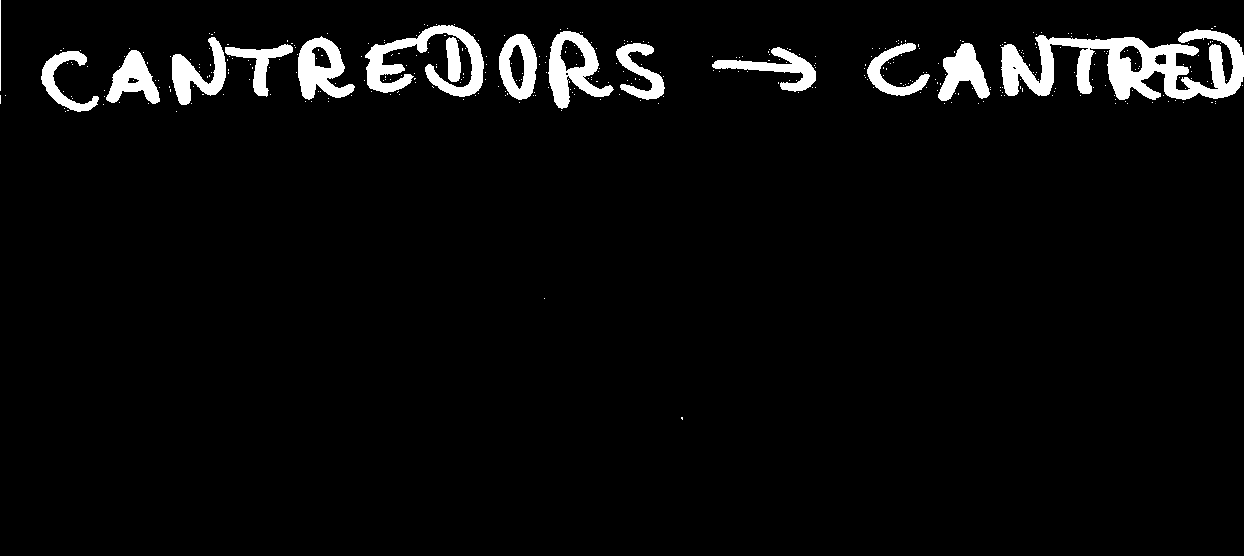 CANTREDORS → CANTRED